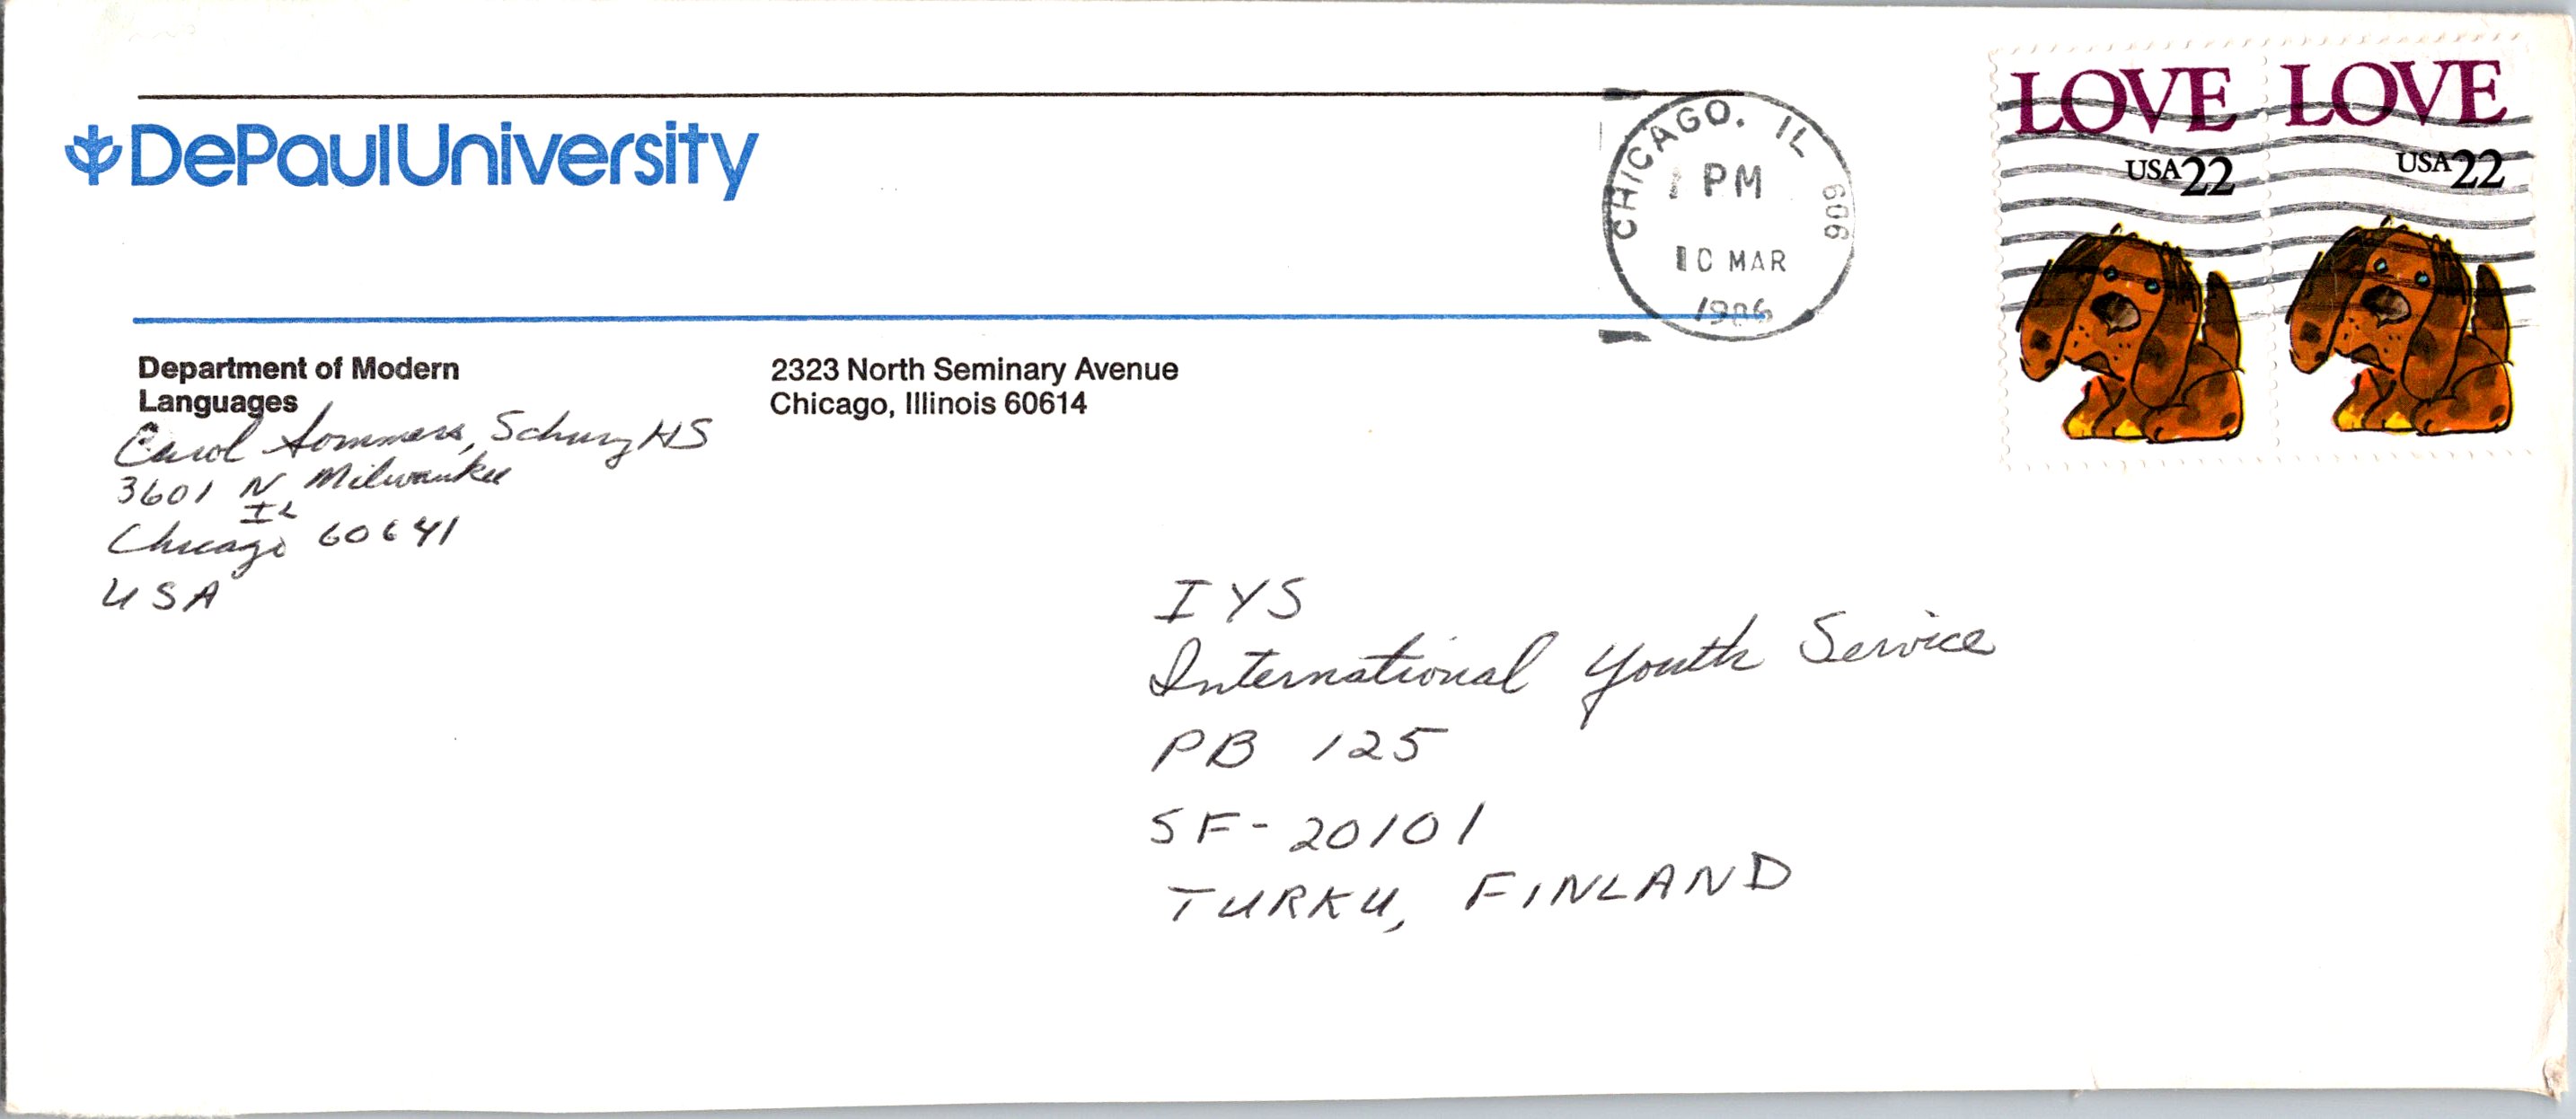 DePaulUniversity
CHICAGO. IL 606
PM
10 MAR
1986
LOVE LOVE
USA22 USA22
Department of Modern
Languages
2323 North Seminary Avenue
Chicago, Illinois 60614
Carol Sommers, Schurz HS
3601 N Milwaukee
IL
Chicago 60641
USA
IYS
International Youth Service
PB 125
SF-20101
TURKU, FINLAND